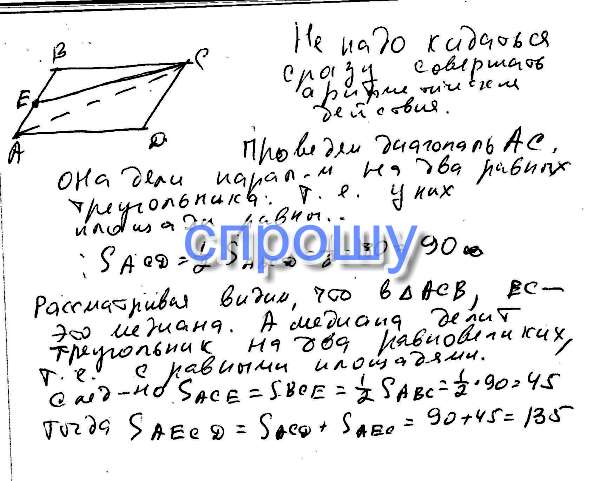 B
C
E
A
D
Не надо кидаться
сразу совершать
арифметические
действия.
Проведем диагональ AC.
Она дели парал-м на два равных
треугольника. т. е. у них
площади равны.
S ACD = 1/2 S 90
спрошу
Рассматривая видим, что в △ACB, EC –
это медиана. А медиана делит
треугольник на два равновеликих,
т. е. с равными площадями.
след-но S ACE = S BCE = 1/2 S ABC = 1/2 · 90 = 45
Тогда S AECD = S ACD + S AEC = 90 + 45 = 135